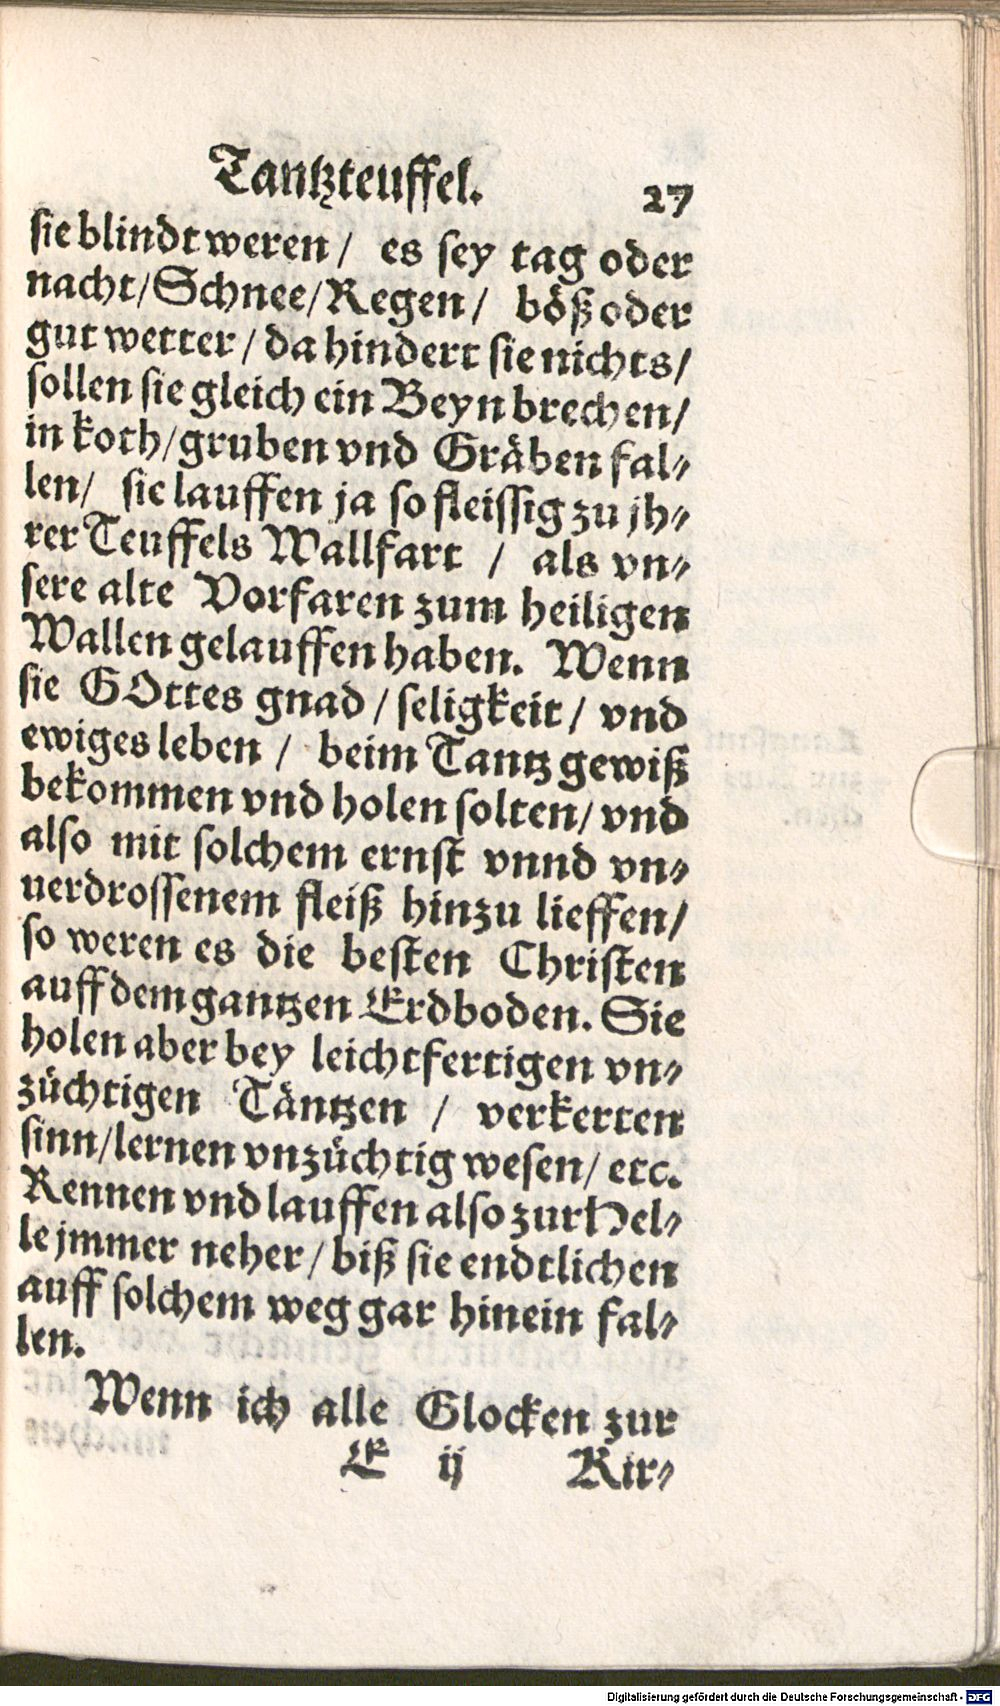 Tantzteuffel. 27
sie blindt weren / es sey tag oder
nacht/Schnee/Regen / böß oder
gut wetter / da hindert sie nichts/
sollen sie gleich ein Beyn brechen/
in koth/gruben vnd Gräben fal⸗
len/ sie lauffen ja so fleissig zu jh⸗
rer Teuffels Wallfart / als vn⸗
sere alte Vorfaren zum heiligen
Wallen gelauffen haben. Wenn
sie GOttes gnad / seligkeit / vnd
ewiges leben / beim Tantz gewiß
bekommen vnd holen solten/ vnd
also mit solchem ernst vnnd vn⸗
uerdrossenem fleiß hinzu lieffen/
so weren es die besten Christen
auff dem gantzen Erdboden. Sie
holen aber bey leichtfertigen vn⸗
züchtigen Täntzen / verkerten
sinn/lernen vnzüchtig wesen/ etc.
Rennen vnd lauffen also zur Hel⸗
le jmmer neher / biß sie endtlichen
auff solchem weg gar hinein fal⸗
len.
Wenn ich alle Glocken zur
E ij Kir⸗
Digitalisierung gefördert durch die Deutsche Forschungsgemeinschaft - DFG